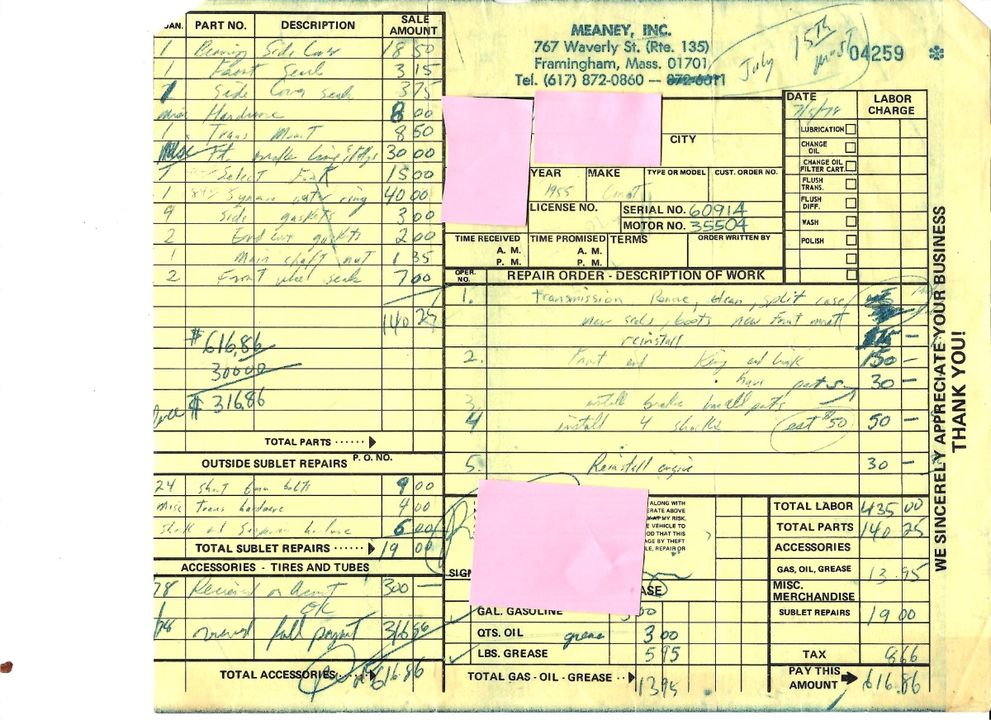 MEANEY, INC.
767 Waverly St. (Rte. 135)
Framingham, Mass. 01701
Tel. (617) 872-0860 —
July 15th
04259 ✻
QUAN. PART NO. DESCRIPTION SALE AMOUNT
1 Bearing Side Cover 18 50
1 Front Seal 3 15
1 Side Cover seal 3 75
misc Hardware 8 00
1 Trans Mount 8 50
Misc 30 00
1 Select 15 00
1 40 00
9 Side gaskets 3 00
2 End Cover gaskets 2 00
1 Main shaft nut 1 35
2 Front wheel seals 7 00
140 25
$616.86
300 00
$316.86
TOTAL PARTS
OUTSIDE SUBLET REPAIRS P.O. NO.
24 9 00
misc Trans hardware 4 00
6 00
TOTAL SUBLET REPAIRS 19 00
ACCESSORIES - TIRES AND TUBES
78 Received on Acount 300 —
OK
78 received full payment 316 86
TOTAL ACCESSORIES 616.86
CITY
YEAR MAKE TYPE OR MODEL CUST. ORDER NO.
1955
LICENSE NO. SERIAL NO. 60914
MOTOR NO. 35504
TIME RECEIVED TIME PROMISED TERMS ORDER WRITTEN BY
A. M. A. M.
P. M. P. M.
DATE LABOR CHARGE
LUBRICATION
CHANGE OIL
CHANGE OIL FILTER CART.
FLUSH TRANS.
FLUSH DIFF.
WASH
POLISH
OPER. NO. REPAIR ORDER - DESCRIPTION OF WORK
1. Transmission, Remove, clean, split case
new seals, boots new Front mount
reinstall
2. Front end King and link 150 —
have parts 30 —
3. install brake small parts
4 install 4 shocks est $50 50 —
5. Reinstall engine 30 —
ALONG WITH
ERATE ABOVE
AT MY RISK.
E VEHICLE TO
OD THAT THIS
AGE BY THEFT
LE, REPAIR OR
SIGN
GAL. GASOLINE
QTS. OIL grease 3 00
LBS. GREASE 5 95
TOTAL GAS - OIL - GREASE 13 95
TOTAL LABOR 435 00
TOTAL PARTS 140 25
ACCESSORIES
GAS, OIL, GREASE 13.95
MISC. MERCHANDISE
SUBLET REPAIRS 19 00
TAX 8 66
PAY THIS AMOUNT 616.86
WE SINCERELY APPRECIATE YOUR BUSINESS
THANK YOU!